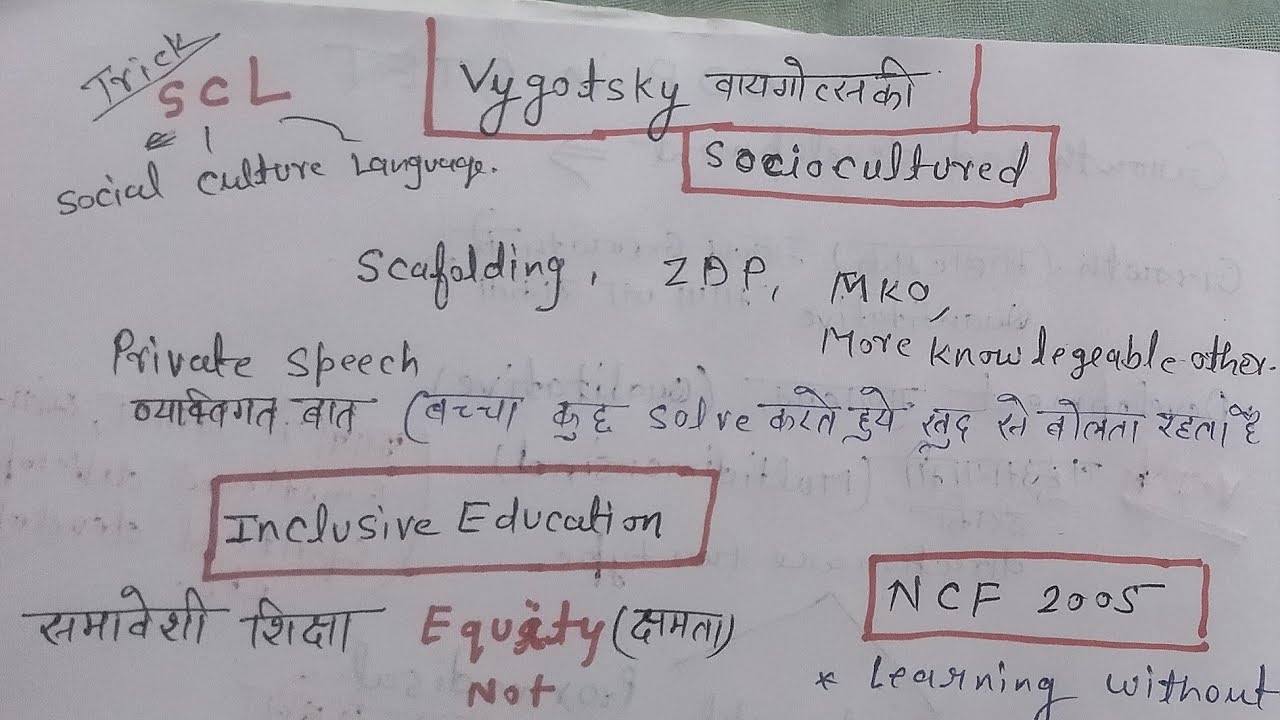 Trick
SCL
Social Culture Language.
Vygotsky वायगोत्सकी
Sociocultured
Scafolding, ZDP, MKO,
More knowlegeable-other.
Private Speech
व्यक्तिगत बात (बच्चा कुछ solve करते हुये खुद से बोलता रहता है
Inclusive Education
समावेशी शिक्षा Equity (क्षमता)
Not
NCF 2005
* Learning without